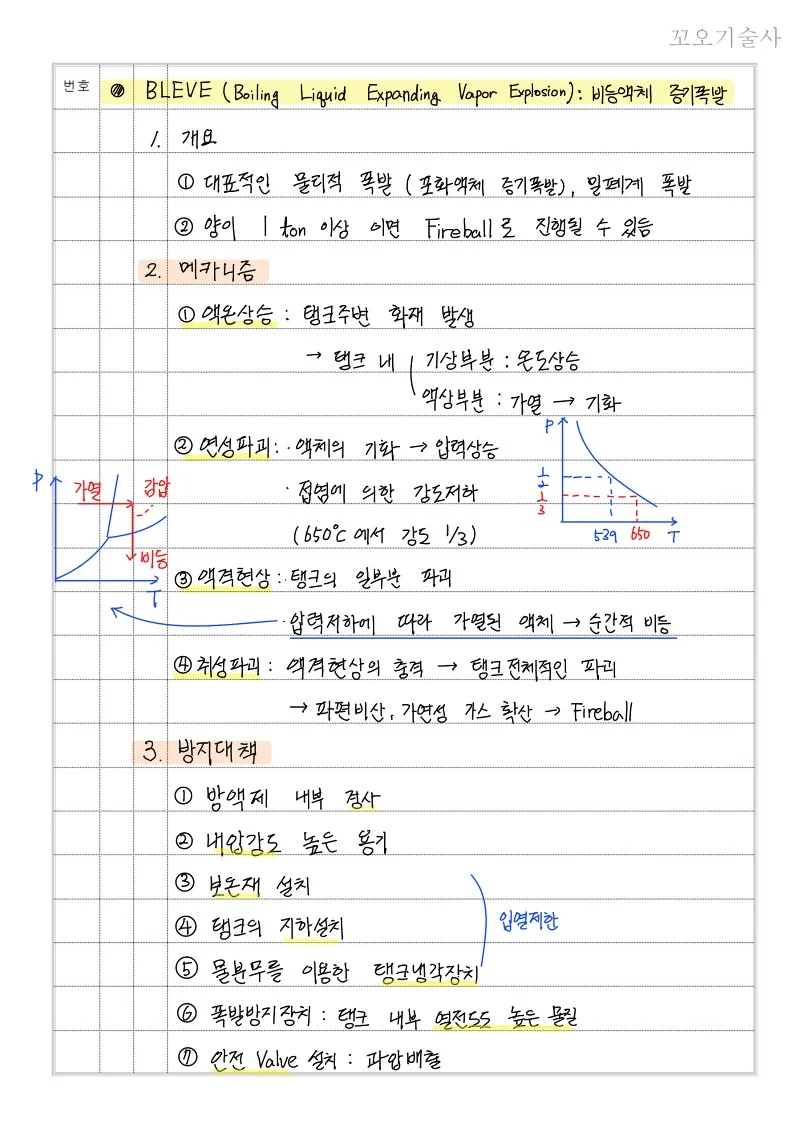 꼬오기술사
번호
BLEVE (Boiling Liquid Expanding Vapor Explosion) : 비등액체 증기폭발
1. 개요
① 대표적인 물리적 폭발 (포화액체 증기폭발), 밀폐계 폭발
② 양이 1 ton 이상 이면 Fireball로 진행될 수 있음
2. 메카니즘
① 액온상승 : 탱크주변 화재 발생
→ 탱크 내 기상부분 : 온도상승
액상부분 : 가열 → 기화
② 연성파괴 : · 액체의 기화 → 압력상승
· 접염에 의한 강도저하
(650℃에서 강도 1/3)
P
1/2
1/3
539 650 T
P
가열 감압
비등
T
③ 액격현상 : · 탱크의 일부분 파괴
· 압력저하에 따라 가열된 액체 → 순간적 비등
④ 취성파괴 : 액격현상의 충격 → 탱크전체적인 파괴
→ 파편비산, 가연성 가스 확산 → Fireball
3. 방지대책
① 방액제 내부 경사
② 내압강도 높은 용기
③ 보온재 설치
④ 탱크의 지하설치
⑤ 물분무를 이용한 탱크냉각장치
입열제한
⑥ 폭발방지장치 : 탱크 내부 열전도도 높은 물질
⑦ 안전 Valve 설치 : 과압배출